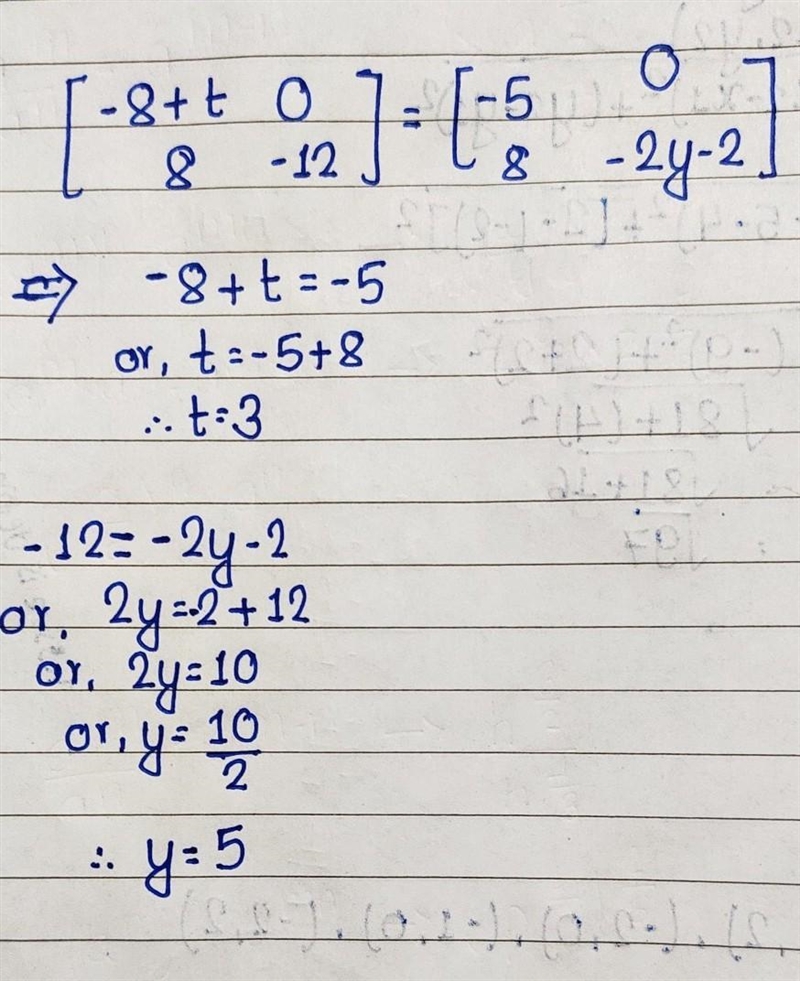 [-8+t 0] = [-5 0]
[8 -12] [8 -2y-2]
⇒ -8+t=-5
or, t=-5+8
∴ t=3
-12=-2y-2
or, 2y=-2+12
or, 2y=10
or, y=10/2
∴ y=5